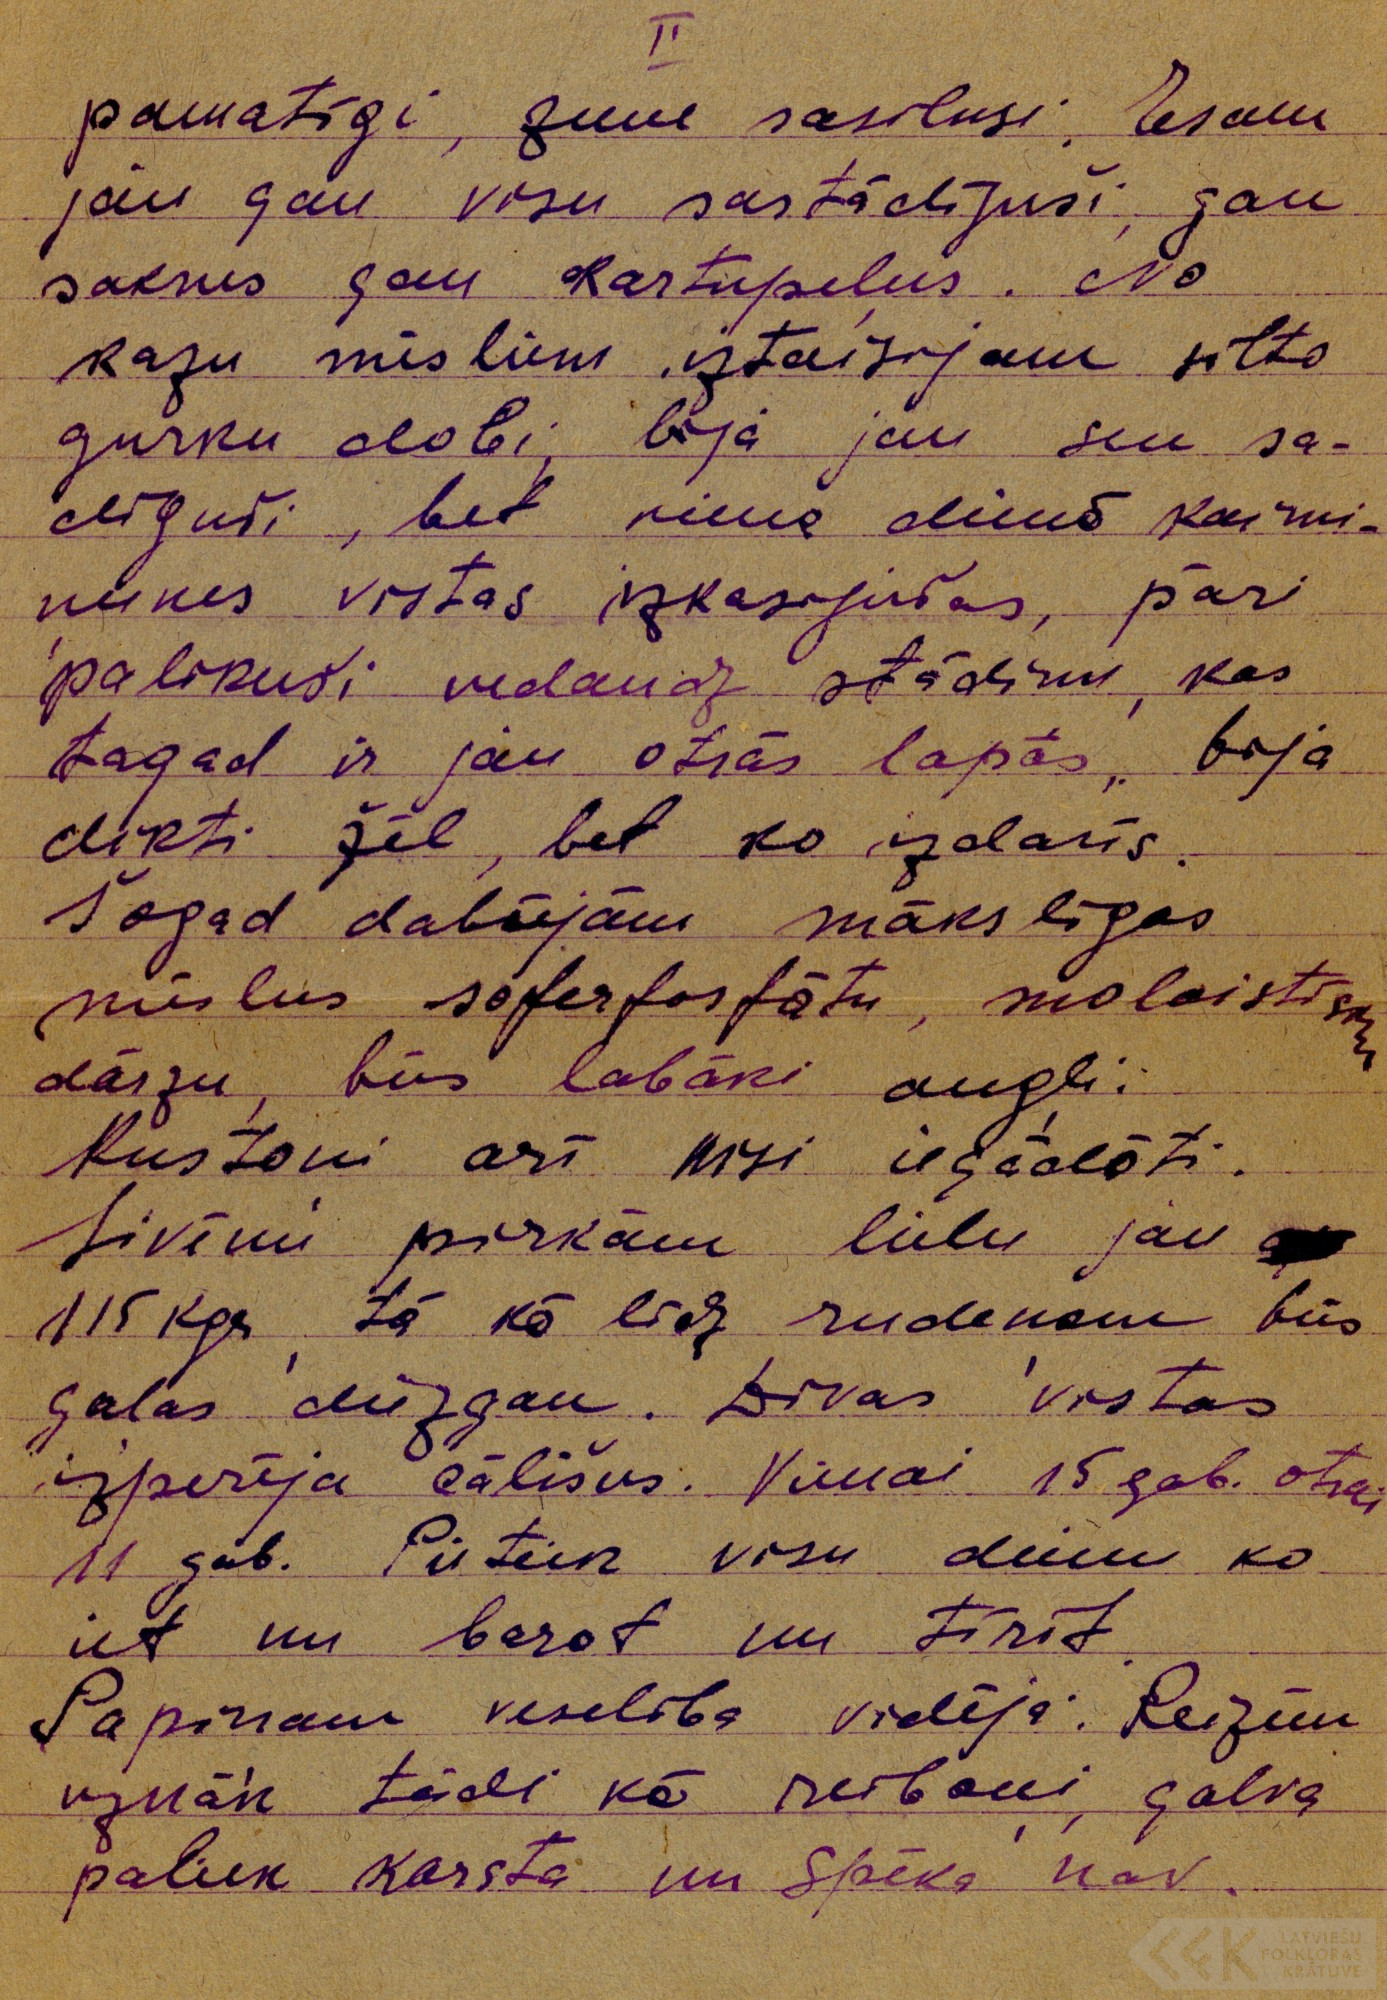 II
pamatīgi, zeme sasilusi. Esam
jau gan visu sastādījuši, gan
saknes gan kartupeļus. No
kazu mēsliem iztaisijam silto
gurķu dobi, bija jau sen sa-
dīguši, bet vienā dienā kaimi-
ņienes vistas izkasijušas, pāri
palikuši nedaudz stādiņu, kas
tagad ir jau otrās lapās, bija
dikti žēl, bet ko izdarīs.
Šogad dabūjām mākslīgos
mēslus soferfosfātu, nolaistīsim
dārzu, būs labāki augļi.
Kustoņi arī visi iegādāti.
Sivēnu pirkām lielu jau
115 kgr, tā kā līdz rudenam būs
gaļas diezgan. Divas vistas
izperēja cālišus. Vienai 15 gab. otrai
11 gab. Pietiek visu dienu ko
iet un barot un tīrīt.
Papiņam veselība vidēja. Reizēm
uznāk tādi kā reiboņi, galva
paliek karsta un spēka nav.
LATVIEŠU
FOLKLORAS
KRĀTUVE